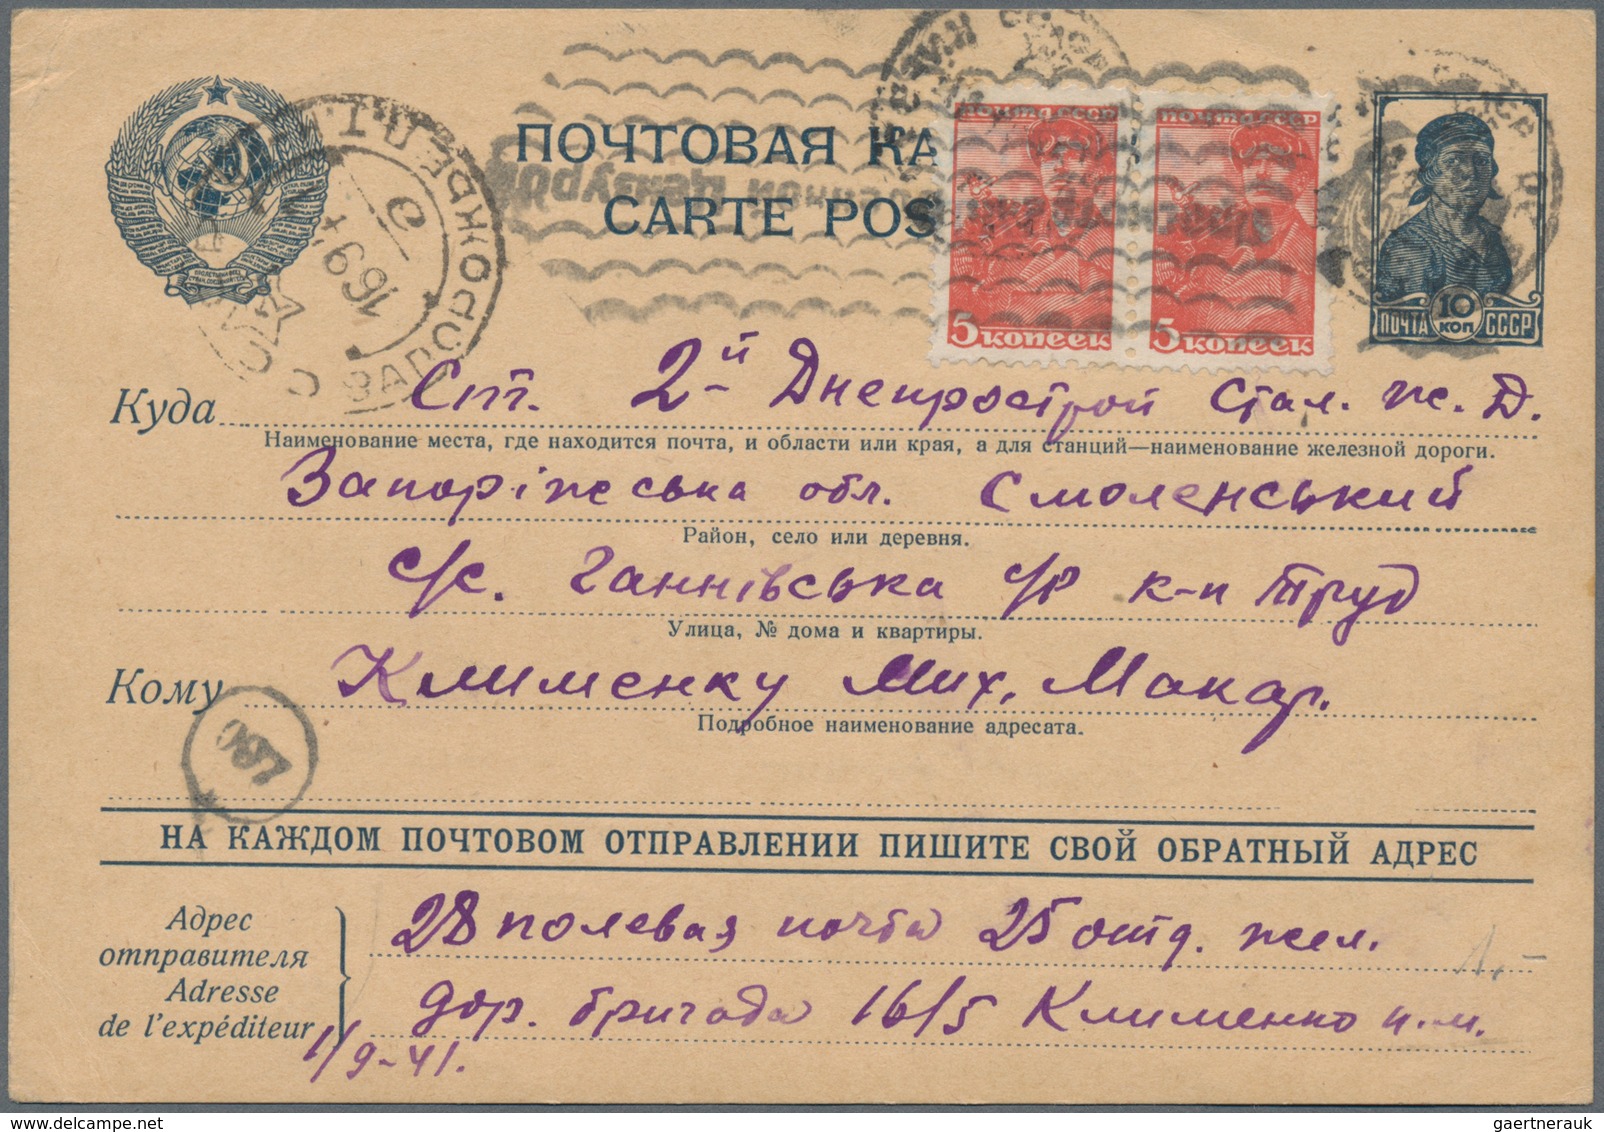 ПОЧТОВАЯ КА
CARTE POS
ПОЧТА СССР
ПОЧТА СССР
5 КОПЕЕК
5 КОПЕЕК
10
КОП
ПОЧТА СССР
Куда Ст. 2-й Днепрострой Стал. ж. Д.
Наименование места, где находится почта, и области или края, а для станций—наименование железной дороги.
Запоріжська обл. Смоленський
Район, село или деревня.
с/с. Ганнівська с/р к-п Труд
Улица, № дома и квартиры.
Кому Клименку Мих. Макар.
Подробное наименование адресата.
НА КАЖДОМ ПОЧТОВОМ ОТПРАВЛЕНИИ ПИШИТЕ СВОЙ ОБРАТНЫЙ АДРЕС
Адрес
отправителя
Adresse
de l'expéditeur
28 полевая почта 25 отд. жел.
дор. бригада 16/5 Клименко и.м.
1/9-41.
gaertnerauk